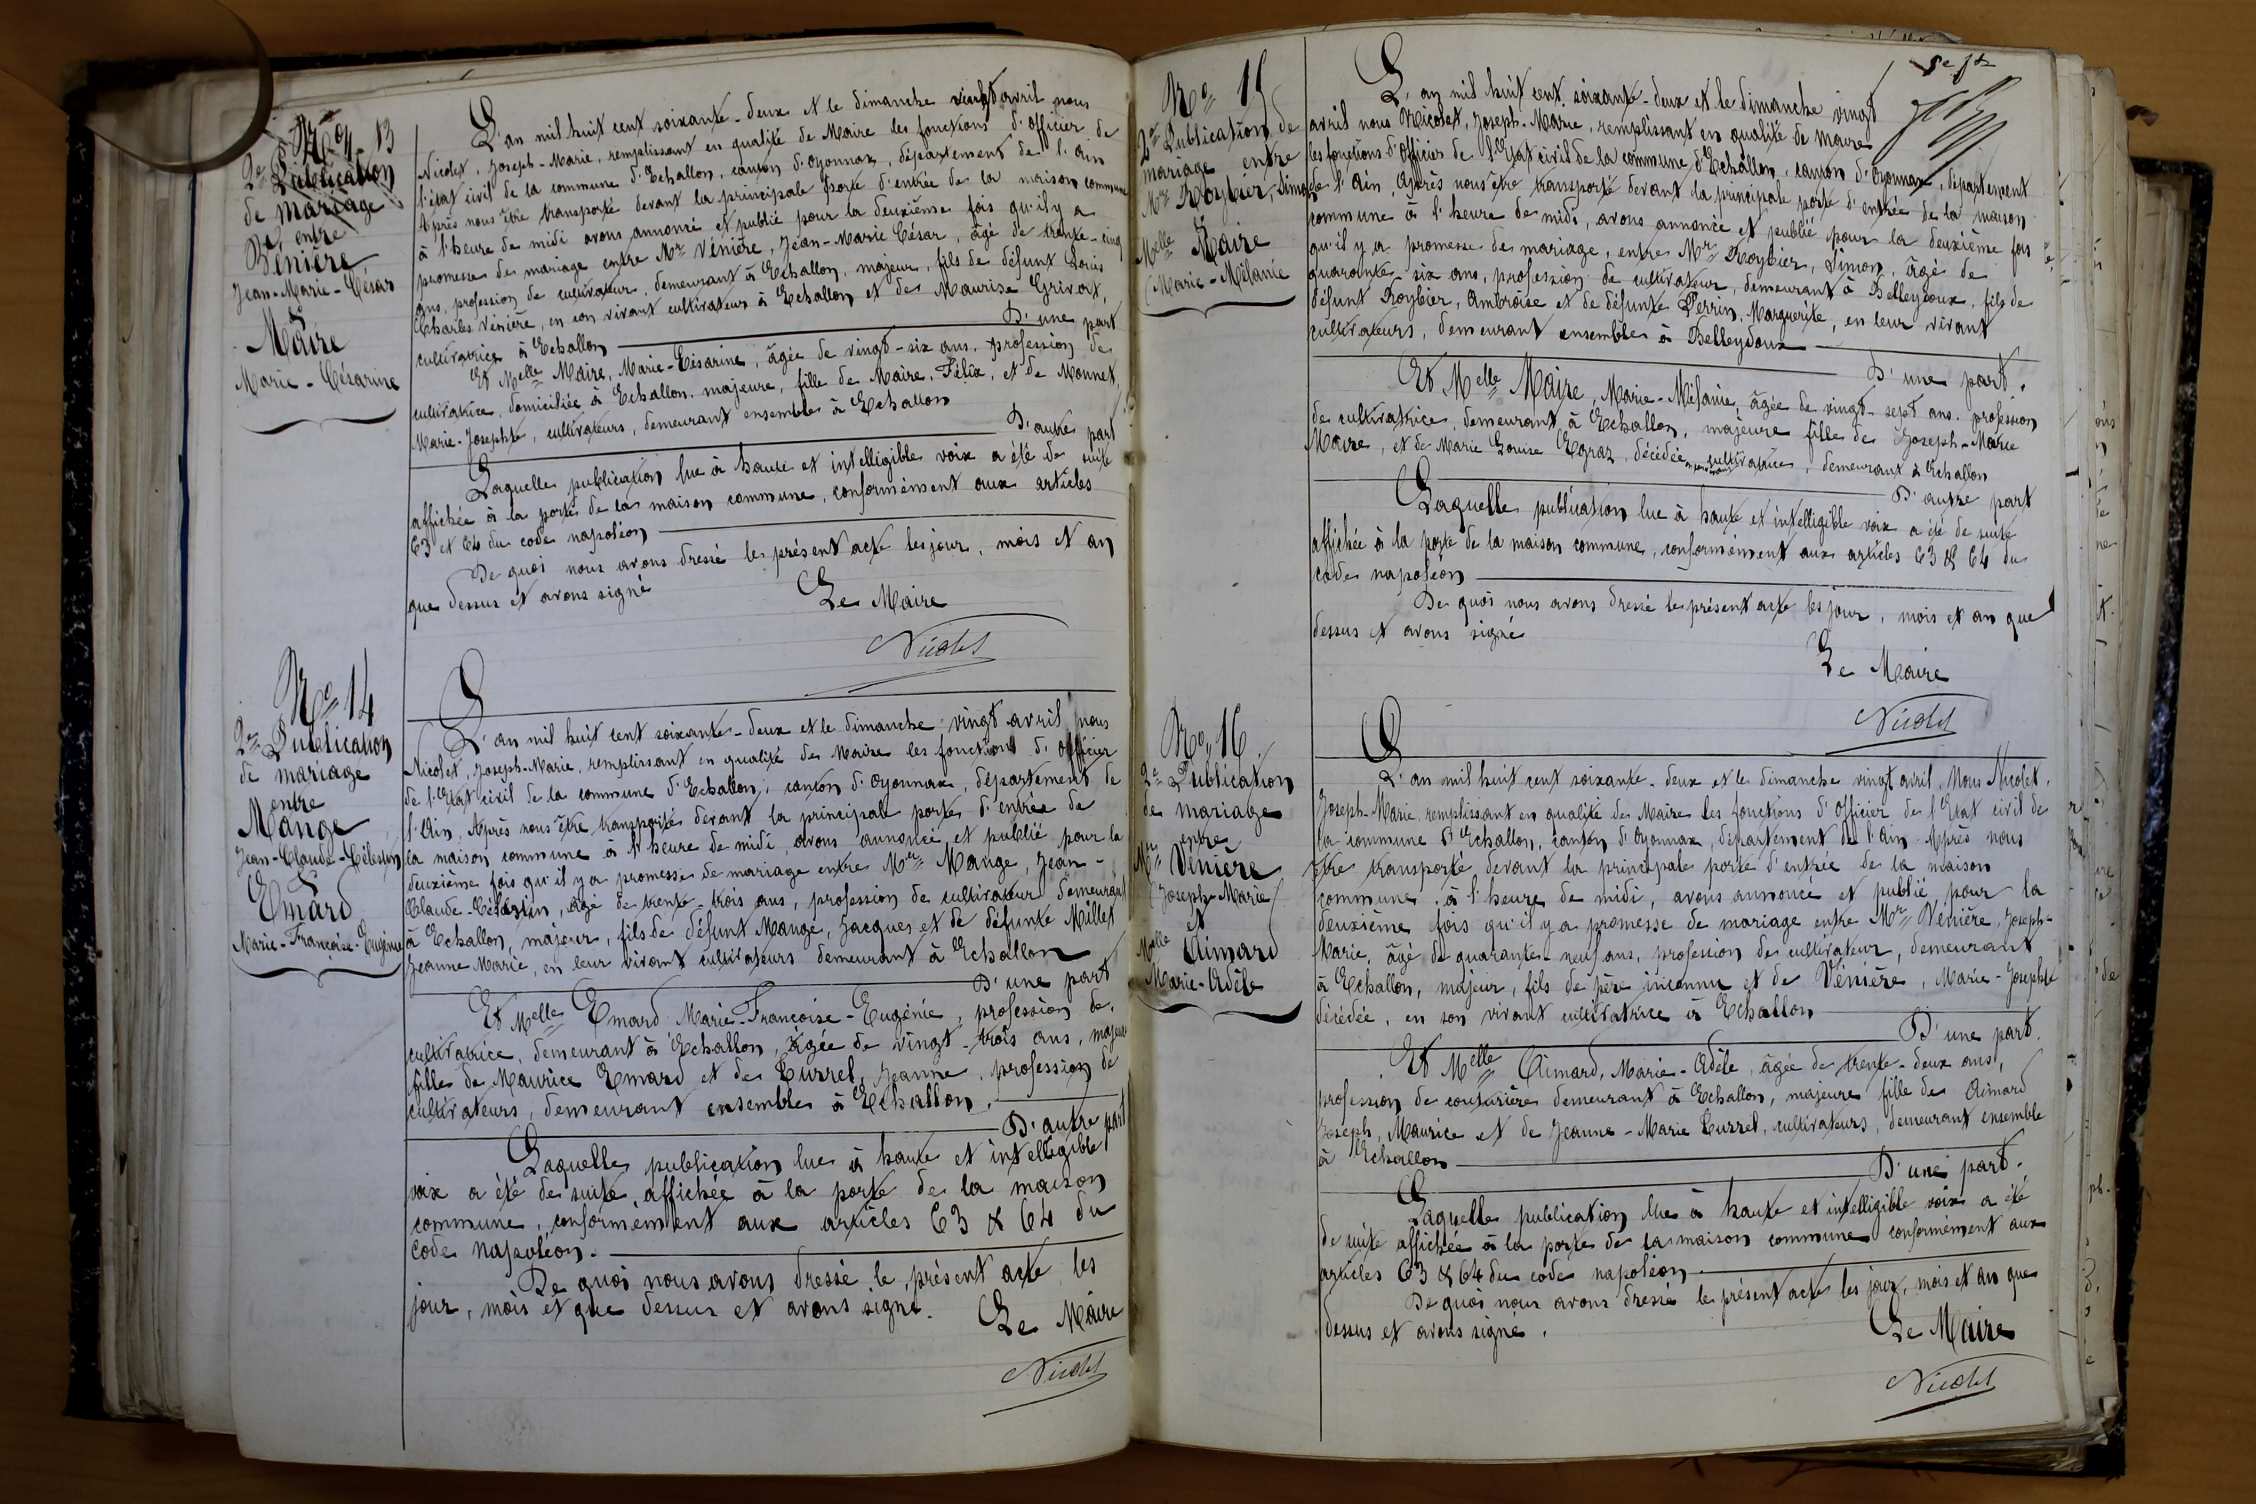 No 13
2e Publication
de mariage
entre
Vénière
Jean-Marie-César
&
Maire
Marie-Césarine
L'an mil huit cent soixante-deux et le dimanche vingt avril nous
Nicolet, Joseph-Marie, remplissant en qualité de Maire les fonctions d'officier de
l'état civil de la commune d'Echallon, canton d'Oyonnax, département de l'Ain
Après nous être transporté devant la principale porte d'entrée de la maison commune
à l'heure de midi avons annoncé et publié pour la deuxième fois qu'il y a
promesse de mariage entre Mr Vénière, Jean-Marie César, âgé de trente-cinq
ans, profession de cultivateur, demeurant à Echallon, majeur, fils de défunt Louis
Charles Vénière, en son vivant cultivateur à Echallon et de Maurise Grivat,
cultivatrice à Echallon D'une part
Et Melle Maire, Marie-Césarine, âgée de vingt-six ans, profession de
cultivatrice, domiciliée à Echallon, majeure, fille de Maire, Félix, et de Monnet,
Marie-Josephte, cultivateurs, demeurant ensemble à Echallon
D'autre part
Laquelle publication lue à haute et intelligible voix a été de suite
affichée à la porte de la maison commune, conformément aux articles
63 et 64 du code napoléon
De quoi nous avons dressé le présent acte les jour, mois et an
que dessus et avons signé
Le Maire
Nicolet
No 14
2e Publication
de mariage
entre
Mange
Jean-Claude-Célestin
Emard
Marie-Françoise-Eugénie
L'an mil huit cent soixante-deux et le dimanche vingt avril nous
Nicolet, Joseph-Marie, remplissant en qualité de Maire les fonctions d'officier
de l'Etat civil de la commune d'Echallon, canton d'Oyonnax, département de
l'Ain, Après nous être transporté devant la principale porte d'entrée de
la maison commune à l'heure de midi, avons annoncé et publié pour la
deuxième fois qu'il y a promesse de mariage entre Mr Mange, Jean-
Claude-Célestin, âgé de trente-trois ans, profession de cultivateur demeurant
à Echallon, majeur, fils de défunt Mange, Jacques et de défunte Millet
Jeanne Marie, en leur vivant cultivateurs demeurant à Echallon
D'une part
Et Melle Emard Marie-Françoise-Eugénie, profession de
cultivatrice, demeurant à Echallon, âgée de vingt-trois ans, majeure
fille de Maurice Emard et de Burrel, Jeanne, profession de
cultivateurs, demeurant ensemble à Echallon.
D'autre part
Laquelle publication lue à haute et intelligible
voix a été de suite affichée à la porte de la maison
commune, conformément aux articles 63 & 64 du
code Napoléon.
De quoi nous avons dressé le présent acte les
jour, mois et que dessus et avons signé.
Le Maire
Nicolet
No 15
2e Publication de
mariage entre
Mr Roybier, Simon
Melle Maire
(Marie-Mélanie
L'an mil huit cent soixante-deux et le dimanche vingt
avril nous Nicolet, Joseph-Marie, remplissant en qualité de Maire
les fonctions d'Officier de l'Etat civil de la commune d'Echallon, canton d'Oyonnax, département
de l'Ain, Après nous être transporté devant la principale porte d'entrée de la maison
commune à l'heure de midi, avons annoncé et publié pour la deuxième fois
qu'il y a promesse de mariage, entre Mr Roybier, Simon, âgé de
quarante-six ans, profession de cultivateur, demeurant à Belleydoux, fils de
défunt Roybier, Ambroise et de défunte Perrin, Marguerite, en leur vivant
cultivateurs, demeurant ensemble à Belleydoux
D'une part.
Et Melle Maire, Marie-Mélanie, âgée de vingt-sept ans, profession
de cultivatrice, demeurant à Echallon, majeure fille de Joseph-Marie
Maire, et de Marie Louise Egraz, décédée cultivatrice, demeurant à Echallon
D'autre part
Laquelle publication lue à haute et intelligible voix a été de suite
affichée à la porte de la maison commune, conformément aux articles 63 & 64 du
code napoléon
De quoi nous avons dressé le présent acte les jour, mois et an que
dessus et avons signé
Le Maire
Nicolet
No 16
2e Publication
de mariage
entre
Mr Vénière
(Joseph-Marie)
et
Melle Aimard
Marie-Adèle
L'an mil huit cent soixante-deux et le dimanche vingt avril, Nous Nicolet,
Joseph-Marie, remplissant en qualité de Maire les fonctions d'Officier de l'Etat civil de
la commune d'Echallon, canton d'Oyonnax, département de l'Ain. Après nous
être transporté devant la principale porte d'entrée de la maison
commune, à l'heure de midi, avons annoncé et publié pour la
deuxième fois qu'il y a promesse de mariage entre Mr Vénière, Joseph-
Marie, âgé de quarante-neuf ans, profession de cultivateur, demeurant
à Echallon, majeur, fils de père inconnu et de Vénière, Marie-Josephte
décédée, en son vivant cultivatrice à Echallon
D'une part.
Et Melle Aimard, Marie-Adèle, âgée de trente-deux ans,
profession de couturière demeurant à Echallon, majeure fille de Aimard
Joseph, Maurice et de Jeanne-Marie Burrel, cultivateurs, demeurant ensemble
à Echallon
D'une part.
Laquelle publication lue à haute et intelligible voix a été
de suite affichée à la porte de la maison commune conformément aux
articles 63 & 64 du code napoléon.
De quoi nous avons dressé le présent acte les jour, mois et an que
dessus et avons signé.
Le Maire
Nicolet